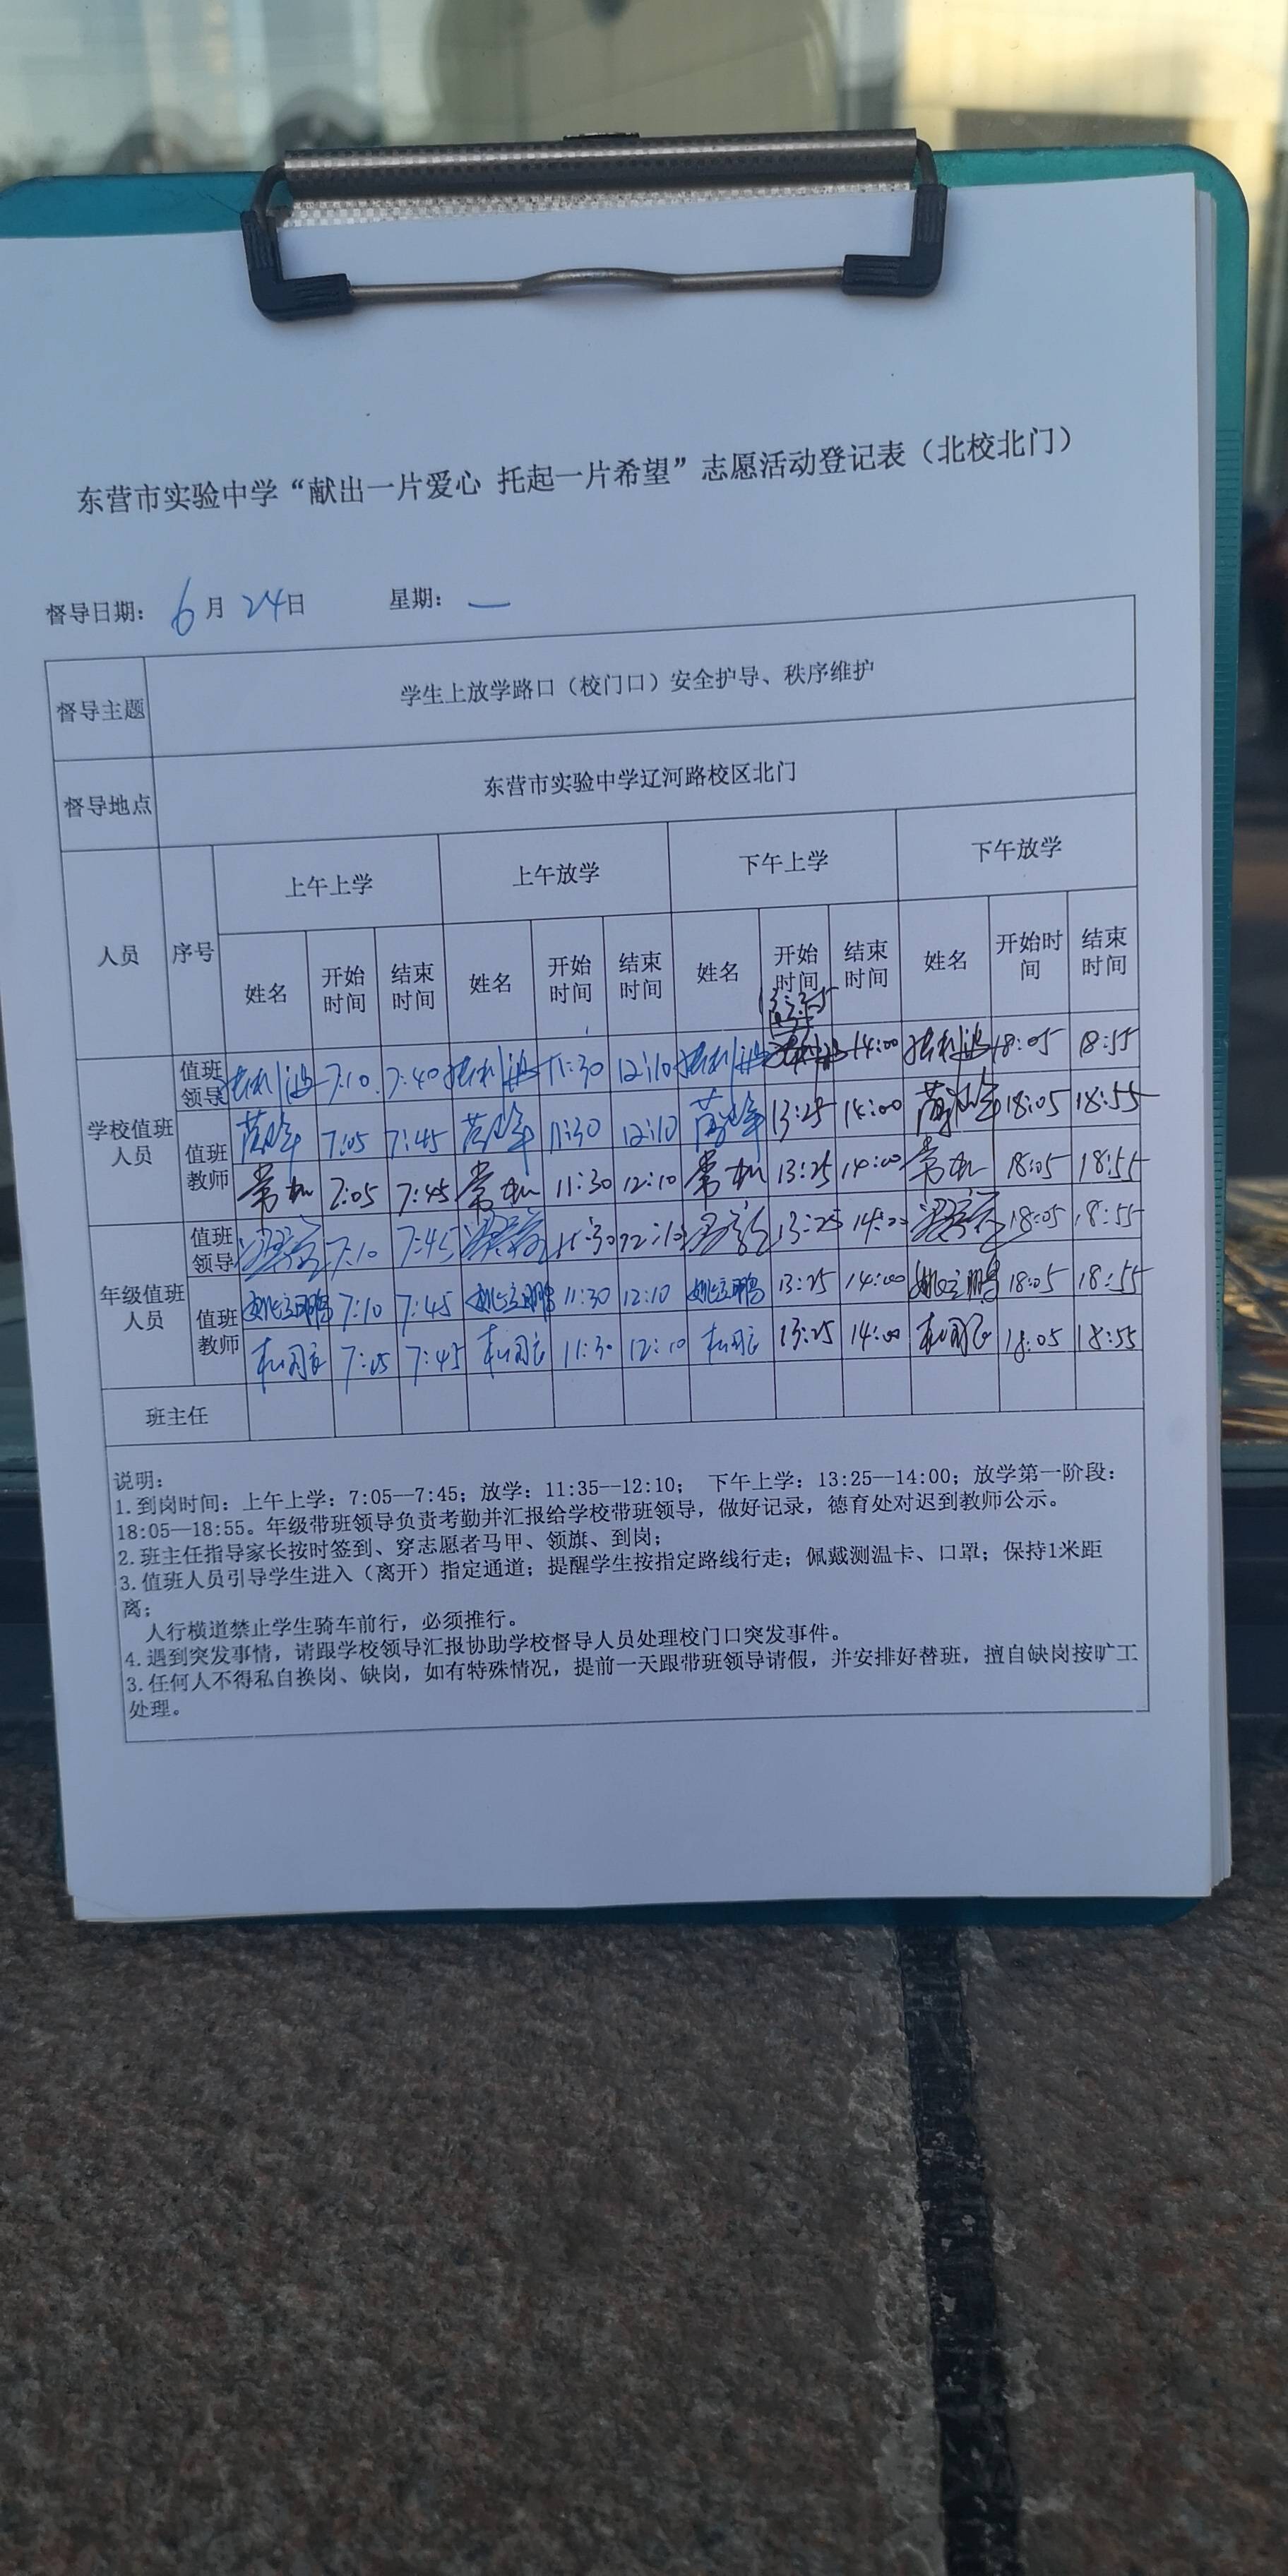 东营市实验中学“献出一片爱心 托起一片希望”志愿活动登记表（北校北门）
督导日期： 6月24日 星期： 一
督导主题 学生上放学路口（校门口）安全护导、秩序维护
督导地点 东营市实验中学辽河路校区北门
人员 序号 上午上学 上午放学 下午上学 下午放学
姓名 开始时间 结束时间 姓名 开始时间 结束时间 姓名 开始时间 结束时间 姓名 开始时间 结束时间
学校值班人员
值班领导 7:10 7:40 11:30 12:10 14:00 18:05 18:55
值班教师 7:05 7:45 11:30 12:10 13:25 14:00 18:05 18:55
7:05 7:45 11:30 12:10 13:25 14:00 18:05 18:55
年级值班人员
值班领导 7:10 7:45 12:10 13:25 14:00 18:05 18:55
值班教师 姚立鹏 7:10 7:45 姚立鹏 11:30 12:10 姚立鹏 13:25 14:00 姚立鹏 18:05 18:55
7:05 7:45 11:30 12:10 13:25 14:00 18:05 18:55
班主任
说明：
1.到岗时间：上午上学：7:05—7:45；放学：11:35—12:10； 下午上学：13:25—14:00；放学第一阶段：
18:05—18:55。年级带班领导负责考勤并汇报给学校带班领导，做好记录，德育处对迟到教师公示。
2.班主任指导家长按时签到、穿志愿者马甲、领旗、到岗；
3.值班人员引导学生进入（离开）指定通道；提醒学生按指定路线行走；佩戴测温卡、口罩；保持1米距
离；
人行横道禁止学生骑车前行，必须推行。
4.遇到突发事情，请跟学校领导汇报协助学校督导人员处理校门口突发事件。
3.任何人不得私自换岗、缺岗，如有特殊情况，提前一天跟带班领导请假，并安排好替班，擅自缺岗按旷工
处理。